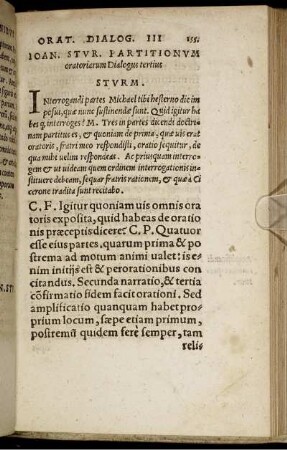 ORAT. DIALOG. III 155.
IOAN. STVR. PARTITIONVM
oratoriarum Dialogus tertius
STVRM.
INterrogandi partes Michael tibi hesterno die im
posui, quæ nunc sustinendæ sunt. Quid igitur ha
bes q̃ interroges? M. Tres in partes dicendi doctri
nam partitus es, & quoniam de prima, quæ uis erat
oratoris, fratri meo respondisti, oratio sequitur, de
qua nũc uelim respondeas. Ac priusquam interro
gem & ut uideam quem ordinem interrogationis in
stituere debeam, sequar fratris rationem, & quæ à Ci
cerone tradita sunt recitabo.
C. F. Igitur quoniam uis omnis orat
toris exposita, quid habeas de oratio
nis præceptis dicere? C. P. Quatuor
esse eius partes. quarum prima & po
strema ad motum animi ualet: is e
nim initijs est & perorationibus con
citandus. Secunda narratio, & tertia
cõfirmatio fidem facit orationi. Sed
amplificatio quanquam habet pro
prium locum, sæpe etiam primum,
postremũ quidem ferè semper, tam
relis